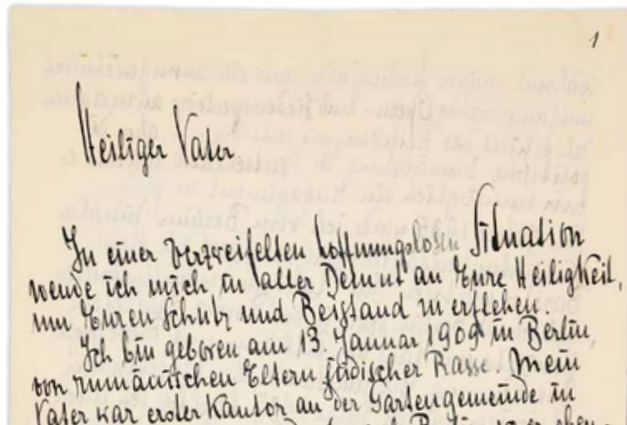 1
Heiliger Vater
In einer verzweifelten hoffnungslosen Situation
wende ich mich in aller Demut an Eure Heiligkeit,
um Euren Schutz und Beistand zu erflehen.
Ich bin geboren am 13. Januar 1909 in Berlin,
von rumänischen Eltern jüdischer Rasse. Mein
Vater war erster Kantor an der Gartengemeinde in